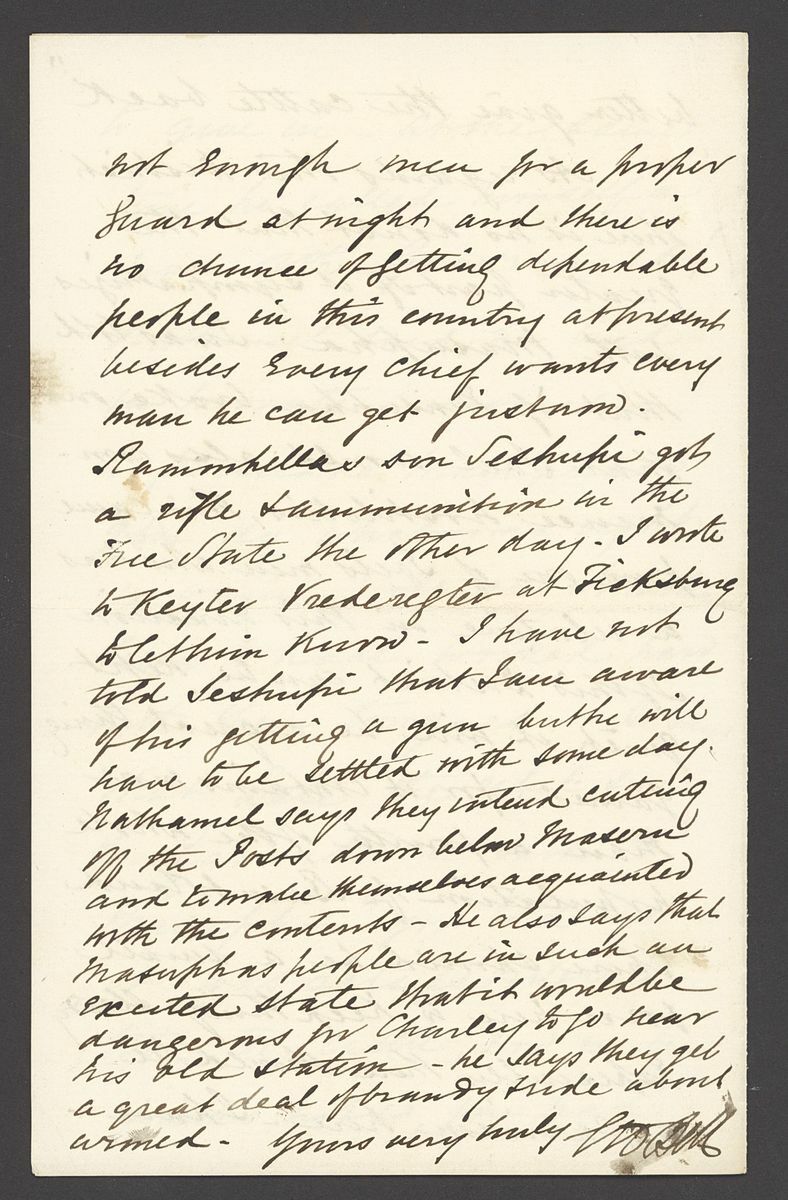 not enough men for a proper
guard at night and there is
no chance of getting dependable
people in this country at present
besides every chief wants every
man he can get just now.
Ramonhellas son Seshupi got
a rifle & ammunition in the
Free State the other day - I wrote
to Keyter Vrederegter at Ficksburg
to let him Know - I have not
told Seshupi that I am aware
of his getting a gun but he will
have to be settled with some day.
Nathanael says they intend cutting
off the Posts down below Maseru
and to make themselves acquainted
with the contents - He also says that
Masuphas people are in such an
excited state that it would be
dangerous for Charley to go near
his old station - he says they get
a great deal of brandy & ride about
armed - Yours very truly